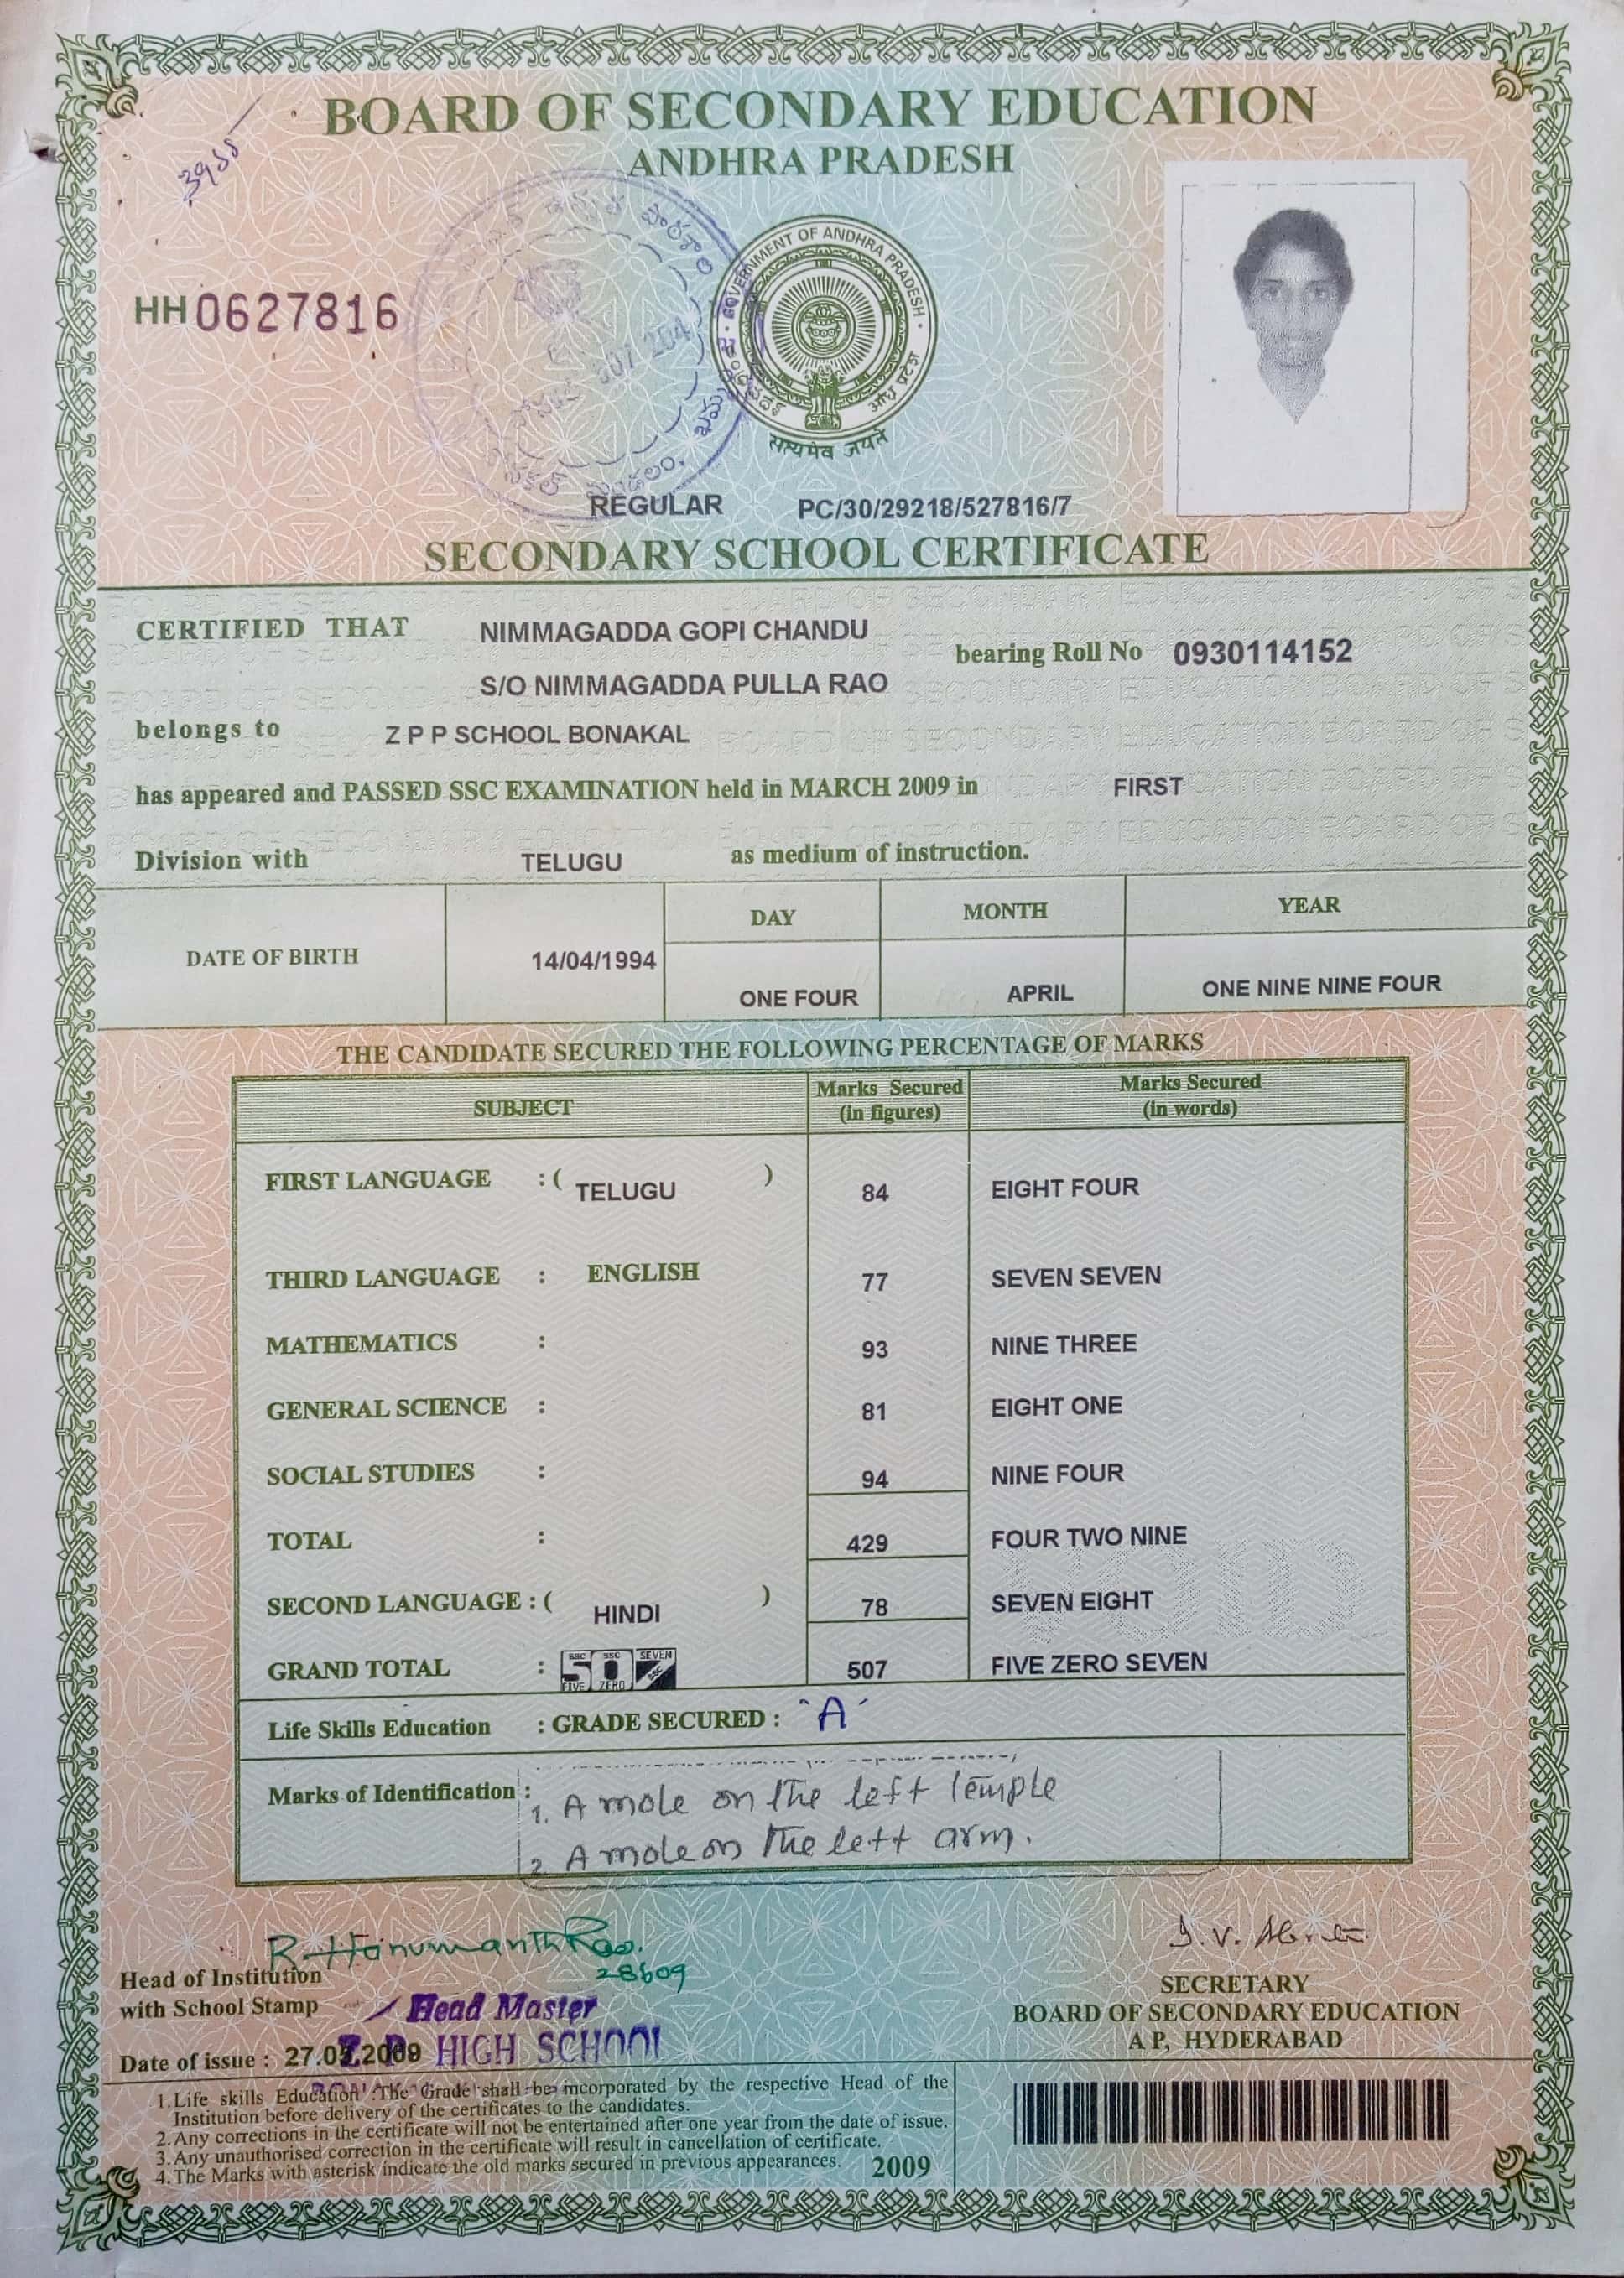 BOARD OF SECONDARY EDUCATION
ANDHRA PRADESH
3955
HH 0627816
GOVERNMENT OF ANDHRA PRADESH
ఆంధ్రప్రదేశ్
आंध्र प्रदेश
सत्यमेव जयते
మండలం.
REGULAR PC/30/29218/527816/7
SECONDARY SCHOOL CERTIFICATE
CERTIFIED THAT NIMMAGADDA GOPI CHANDU
bearing Roll No 0930114152
S/O NIMMAGADDA PULLA RAO
belongs to Z P P SCHOOL BONAKAL
has appeared and PASSED SSC EXAMINATION held in MARCH 2009 in FIRST
Division with TELUGU as medium of instruction.
DATE OF BIRTH 14/04/1994
DAY MONTH YEAR
ONE FOUR APRIL ONE NINE NINE FOUR
THE CANDIDATE SECURED THE FOLLOWING PERCENTAGE OF MARKS
SUBJECT Marks Secured (in figures) Marks Secured (in words)
FIRST LANGUAGE : ( TELUGU ) 84 EIGHT FOUR
THIRD LANGUAGE : ENGLISH 77 SEVEN SEVEN
MATHEMATICS : 93 NINE THREE
GENERAL SCIENCE : 81 EIGHT ONE
SOCIAL STUDIES : 94 NINE FOUR
TOTAL : 429 FOUR TWO NINE
SECOND LANGUAGE : ( HINDI ) 78 SEVEN EIGHT
GRAND TOTAL : SSC 5 FIVE SSC 0 ZERO SEVEN 7 SSC 507 FIVE ZERO SEVEN
Life Skills Education : GRADE SECURED : "A"
Marks of Identification :
1. A mole on the left temple
2. A mole on the left arm.
R. Hanumanth Rao.
28609
Head of Institution
with School Stamp
Head Master
Z P HIGH SCHOOL
Date of issue :
SECRETARY
BOARD OF SECONDARY EDUCATION
A P, HYDERABAD
1. Life skills Education : The Grade shall be incorporated by the respective Head of the
Institution before delivery of the certificates to the candidates.
2. Any corrections in the certificate will not be entertained after one year from the date of issue.
3. Any unauthorised correction in the certificate will result in cancellation of certificate.
4. The Marks with asterisk indicate the old marks secured in previous appearances. 2009